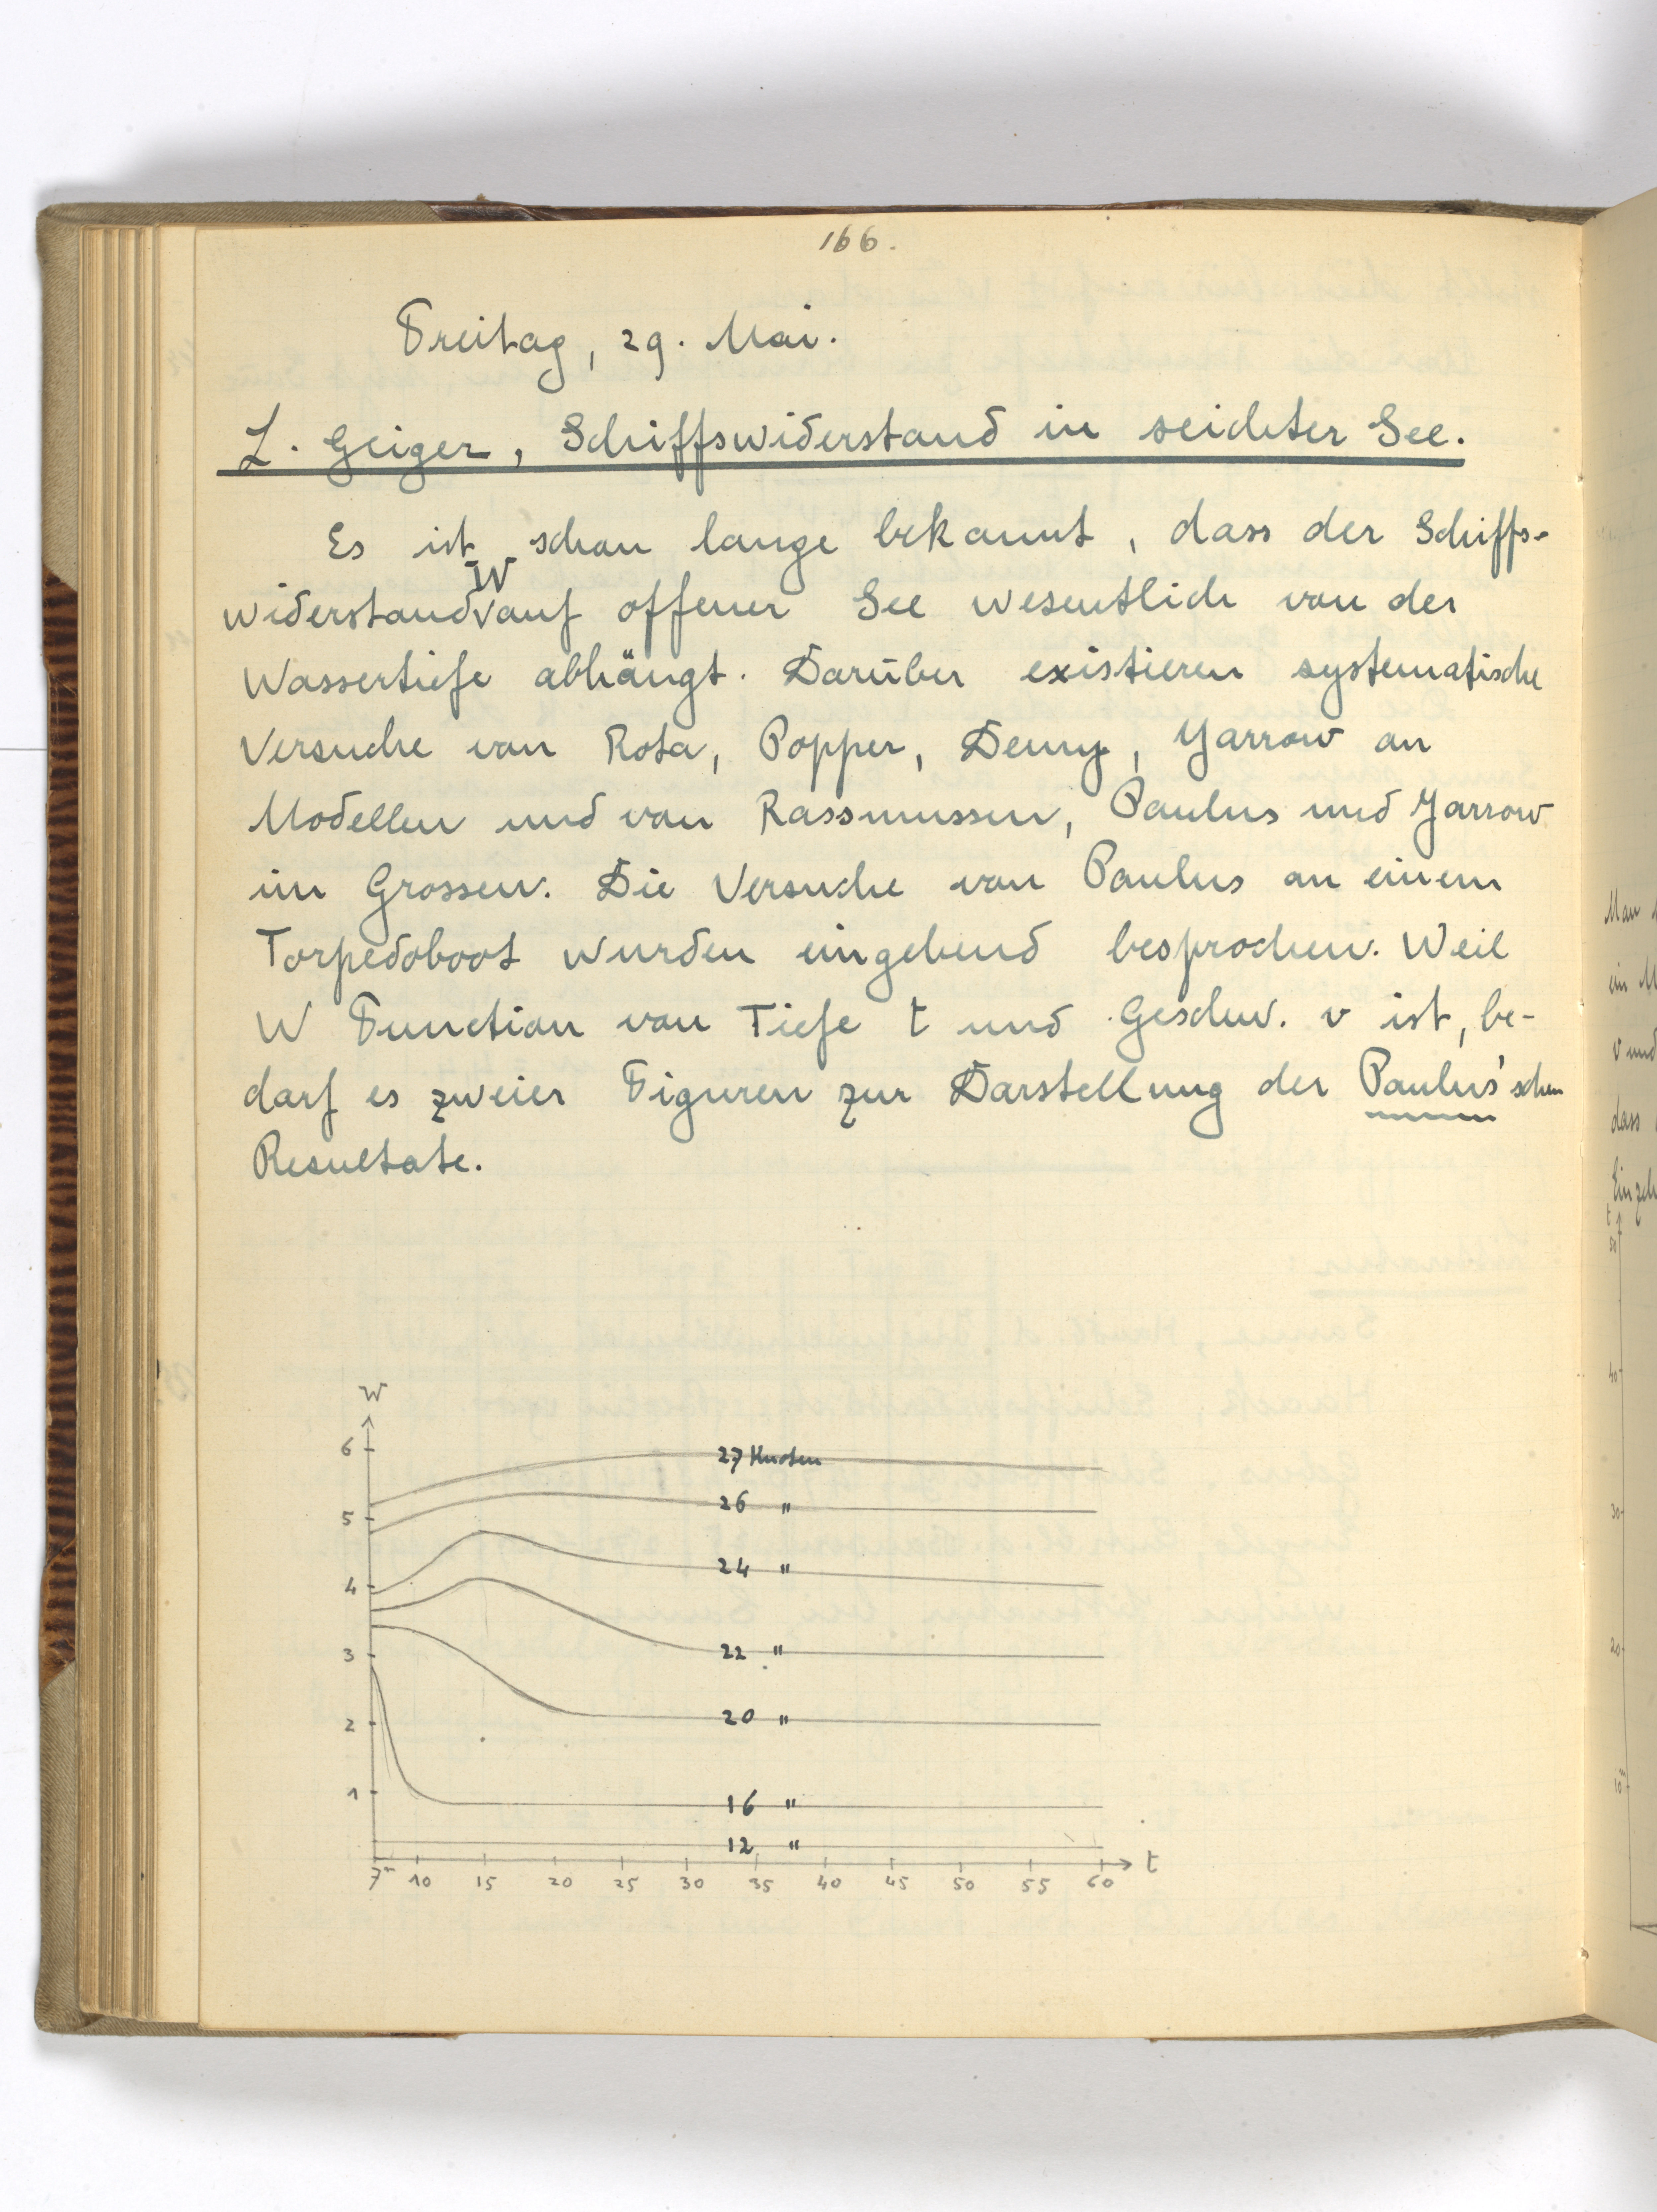 166.
Freitag, 29. Mai.
L. Geiger, Schiffswiderstand in seichter See.
Es ist schon lange bekannt, dass der Schiffs-
widerstand W auf offener See wesentlich von der
Wassertiefe abhängt. Darüber existieren systematische
Versuche von Rota, Popper, Denny, Yarrow an
Modellen und von Rassmussen, Paulus und Yarrow
im Grossen. Die Versuche von Paulus an einem
Torpedoboot wurden eingehend besprochen. Weil
W Function von Tiefe t und Geschw. v ist, be-
darf es zweier Figuren zur Darstellung der Paulus'schen
Resultate.
W
6
27 Knoten
5
26 "
4
24 "
3
22 "
2
20 "
1
16 "
12 "
7m 10 15 20 25 30 35 40 45 50 55 60 t
Man
ein
v und
dass
t
50
40
30
20
10m